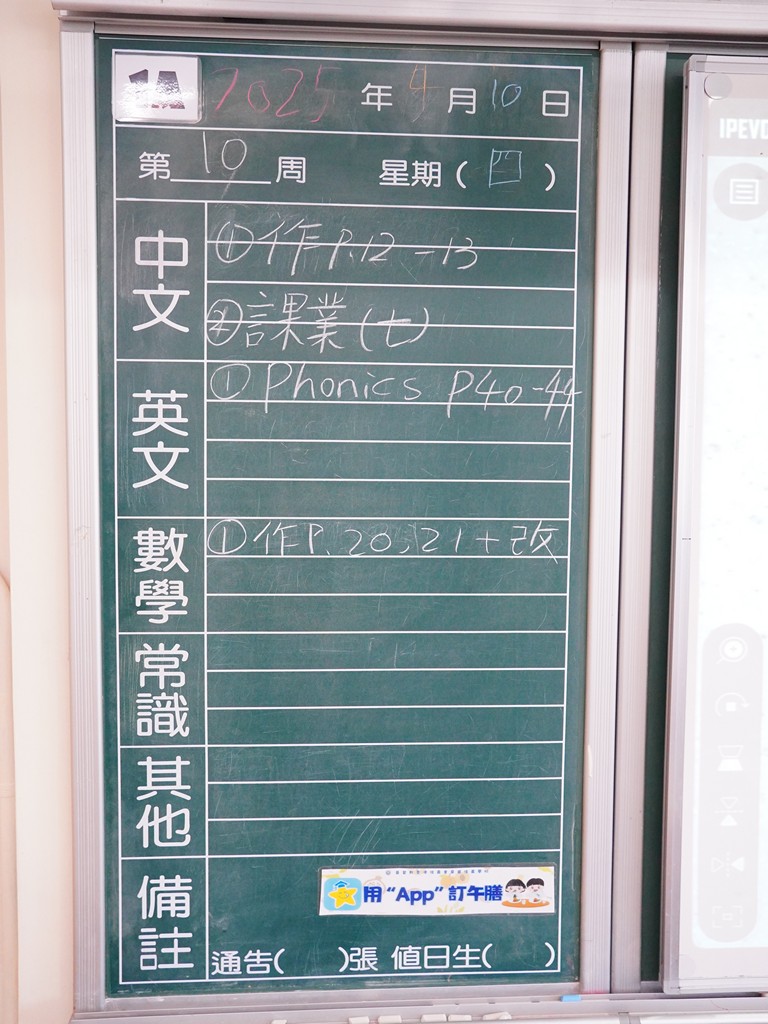 1A 2025 年 4 月 10 日
第 10 周 星期 ( 四 )
中文
①作 P.12 - 13
②課業 (七)
英文
① Phonics P40-44
數學
①作P. 20,21 + 改
常識
其他
備註
用 “App” 訂午膳
通告( )張 值日生( )
IPEVO